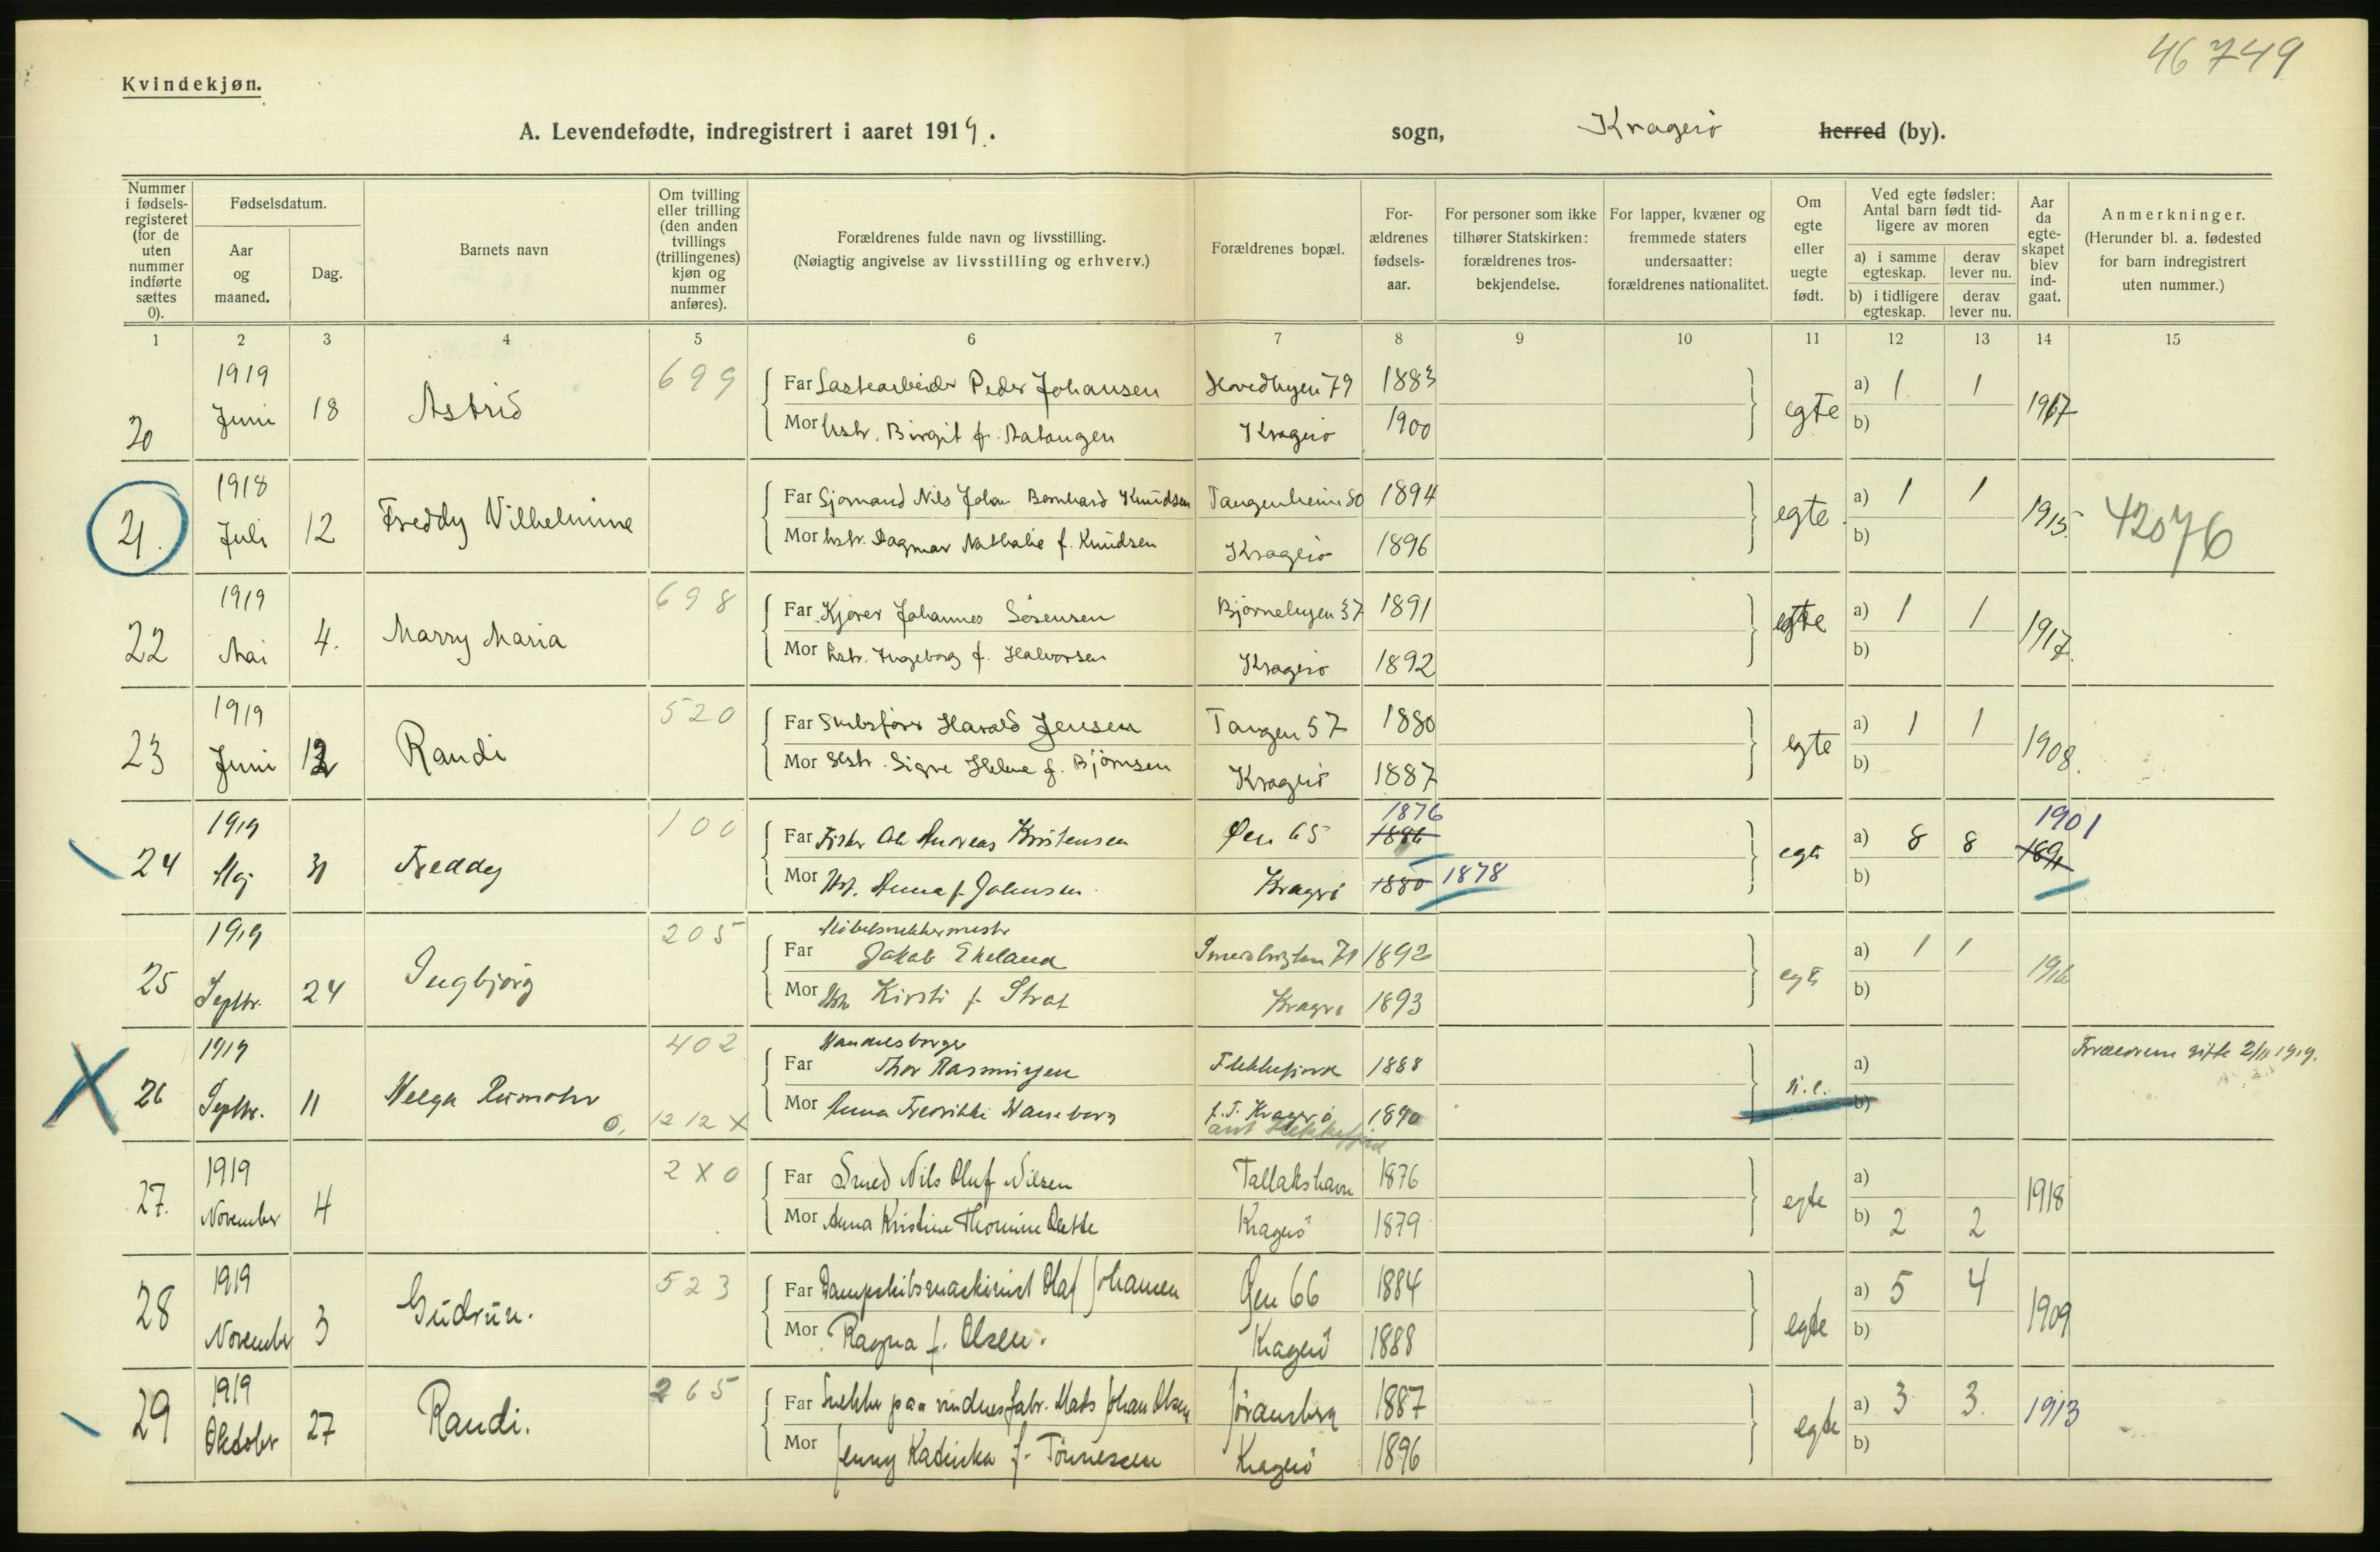 46749
Kvindekjøn.
A. Levendefødte, indregistrert i aaret 1919. sogn, Kragerö herred (by).
Nummer i fødselsregisteret (for de uten nummer indførte sættes 0).
Fødselsdatum.
Aar og maaned.
Dag.
Barnets navn
Om tvilling eller trilling (den anden tvillings (trillingenes) kjøn og nummer anføres).
Forældrenes fulde navn og livsstilling.
(Nøiagtig angivelse av livsstilling og erhverv.)
Forældrenes bopæl.
Forældrenes fødselsaar.
For personer som ikke tilhører Statskirken: forældrenes trosbekjendelse.
For lapper, kvæner og fremmede staters undersaatter: forældrenes nationalitet.
Om egte eller uegte født.
Ved egte fødsler: Antal barn født tidligere av moren
a) i samme egteskap. derav lever nu.
b) i tidligere egteskap. derav lever nu.
Aar da egteskapet blev indgaat.
Anmerkninger.
(Herunder bl. a. fødested for barn indregistrert uten nummer.)
1 2 3 4 5 6 7 8 9 10 11 12 13 14 15
20 1919 Juni 18 Astrid 699
Far Lastearbeider Peder Johansen Hovedbyen 79 1883 egte a) 1 1 1917
Mor hstr. Birgit f. Kragerö 1900 b)
21. 1918 Juli 12 Freddy Vilhelmine
Far Sjømand Nils Johan Bernhard Knudsen Tangenheim 80 1894 egte a) 1 1 1915. 42076
Mor hstr. Dagmar Nathalie f. Knudsen Kragerö 1896 b)
22 1919 Mai 4. Marry Maria 698
Far Kjører Johannes Sörensen Björnebyen 37 1891 egte a) 1 1 1917.
Mor hstr. Ingeborg f. Halvorsen Kragerö 1892 b)
23 1919 Juni 12 Randi 520
Far Skibsförer Harald Jensen Tangen 57 1880 egte a) 1 1 1908.
Mor Hstr. Signe Helene f. Björnsen Kragerö 1887 b)
24 1919 Maj 31 Freddy 100
Far Fisker Ole Andreas Kristensen Øen 65 1876 egte a) 8 8 1901
Mor Hst. Anna f. Johnsen Kragerö 1880 1878 b)
25 1919 Septbr. 24 Ingbjörg 205
Møbelsnekkermester
Far Jakob Ekeland 71 1892 egte a) 1 1 1916
Mor Hstr Kirsti f. Kragerö 1893 b)
26 1919 Septbr. 11 Helga Rumohr 402
Handelsborger
Far Thor Rasmussen Flekkefjord 1888 u.e. a) Forældrene gifte 2/11 1919.
0, 12 12 X Mor Anna Fredrikke Hauseberg f. T. Kragerö 1890 b)
ant Flekkefjord
27. 1919 November 4 2 X 0
Far Smed Nils Oluf Nilsen Tallakshavn 1876 egte a) 1918
Mor Anna Kristine Thomine Kragerö 1879 b) 2 2
28 1919 November 3 Gudrun. 523
Far Dampskibsmaskinist Olaf Johansen Øen 66 1884 egte a) 5 4 1909
Mor Ragna f. Olsen. Kragerö 1888 b)
29 1919 Oktober 27 Randi. 265
Far Snekker paa vinduesfabr. Mads Johan Olsen Jøransberg 1887 egte a) 3 3. 1913
Mor Jenny Kadinka f. Tönnessen Kragerö 1896 b)